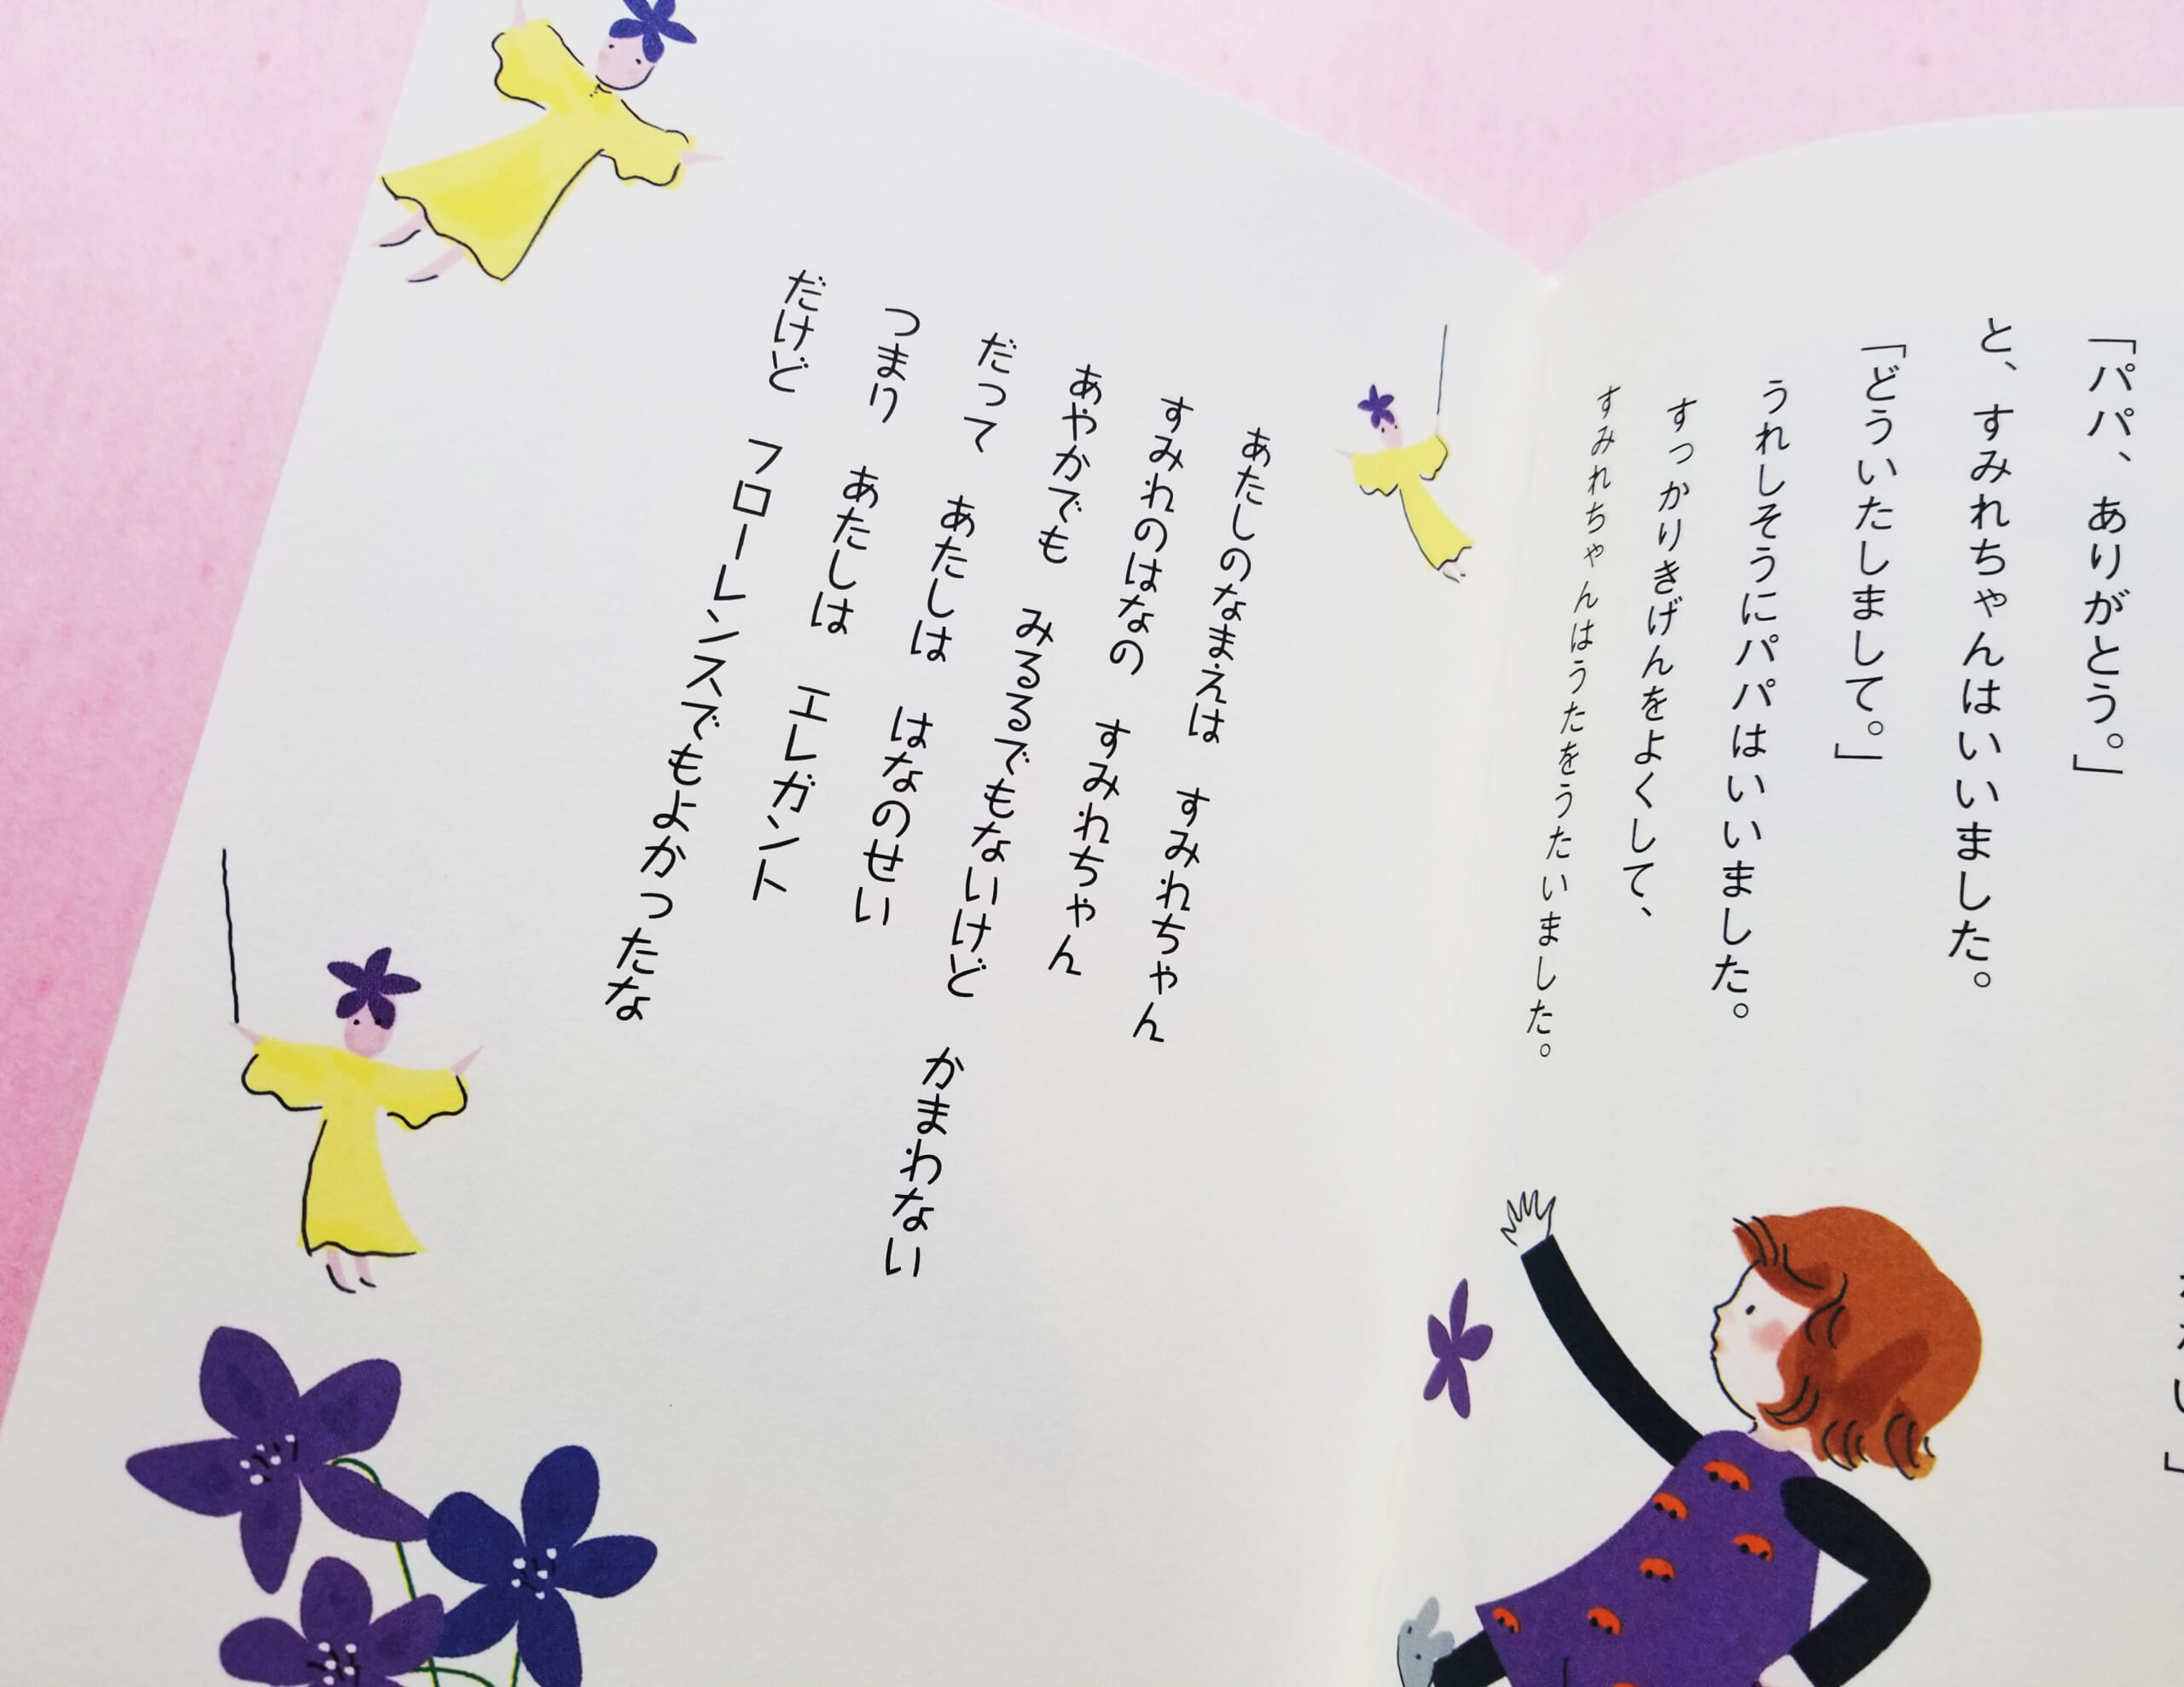 「パパ、ありがとう。」
と、すみれちゃんはいいました。
「どういたしまして。」
うれしそうにパパはいいました。
すっかりきげんをよくして、
すみれちゃんはうたをうたいました。
あたしのなまえは　すみれちゃん
すみれのはなの　すみれちゃん
あやかでも　みるるでもないけど　かまわない
だって　あたしは　はなのせい
つまり　あたしは　エレガント
だけど　フローレンスでもよかったな